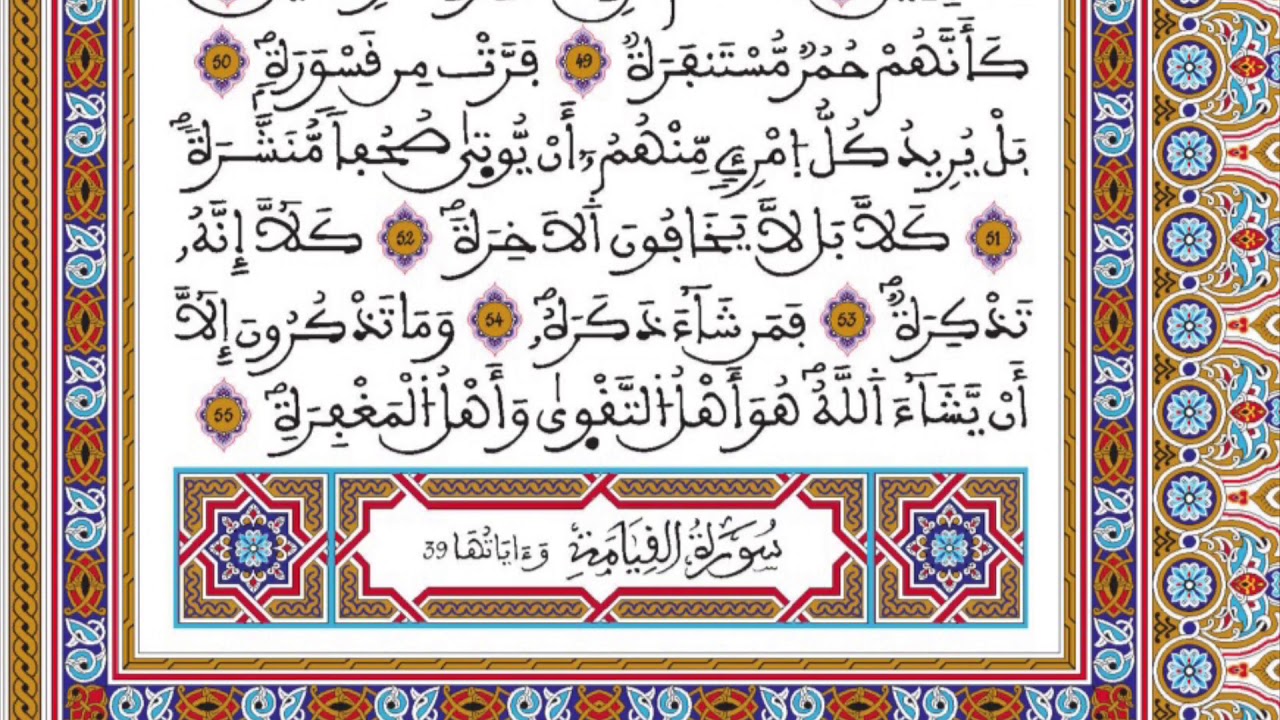 كَأَنَّهُمْ حُمُرٌ مُّسْتَنفَرَةٌ 49 فَرَّتْ مِن قَسْوَرَةٍ 50
بَلْ يُرِيدُ كُلُّ اُمْرِےٕ مِّنْهُمُۥٓ أَنْ يُّوتىٰ صُحُفاً مُّنَشَّرَةً
51 كَلاَّ بَل لاَّ يَخَافُونَ اَلاَخِرَةَ 52 كَلاَّ إِنَّهُۥ
تَذْكِرَةٌ 53 فَمَن شَآءَ ذَكَرَهُۥ 54 وَمَا تَذْكُرُونَ إِلآَّ
أَنْ يَّشَآءَ اَللَّهُ هُوَ أَهْلُ اُلتَّقْوىٰ وَأَهْلُ اُلْمَغْفِرَةِ 55
سُورَةُ الْقِيَامَةِ وَءَايَاتُهَا 39